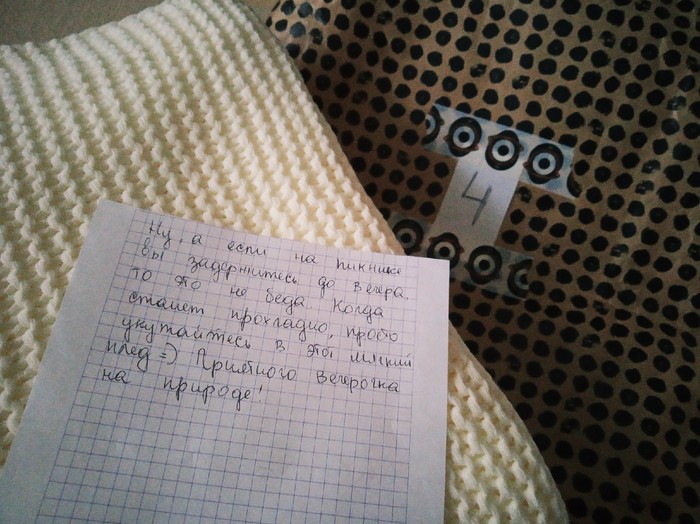 Ну, а если на пикнике
вы задержитесь до вечера,
то это не беда. Когда
станет прохладно, просто
укутайтесь в этот мягкий
плед =) Приятного вечерочка
на природе!
4